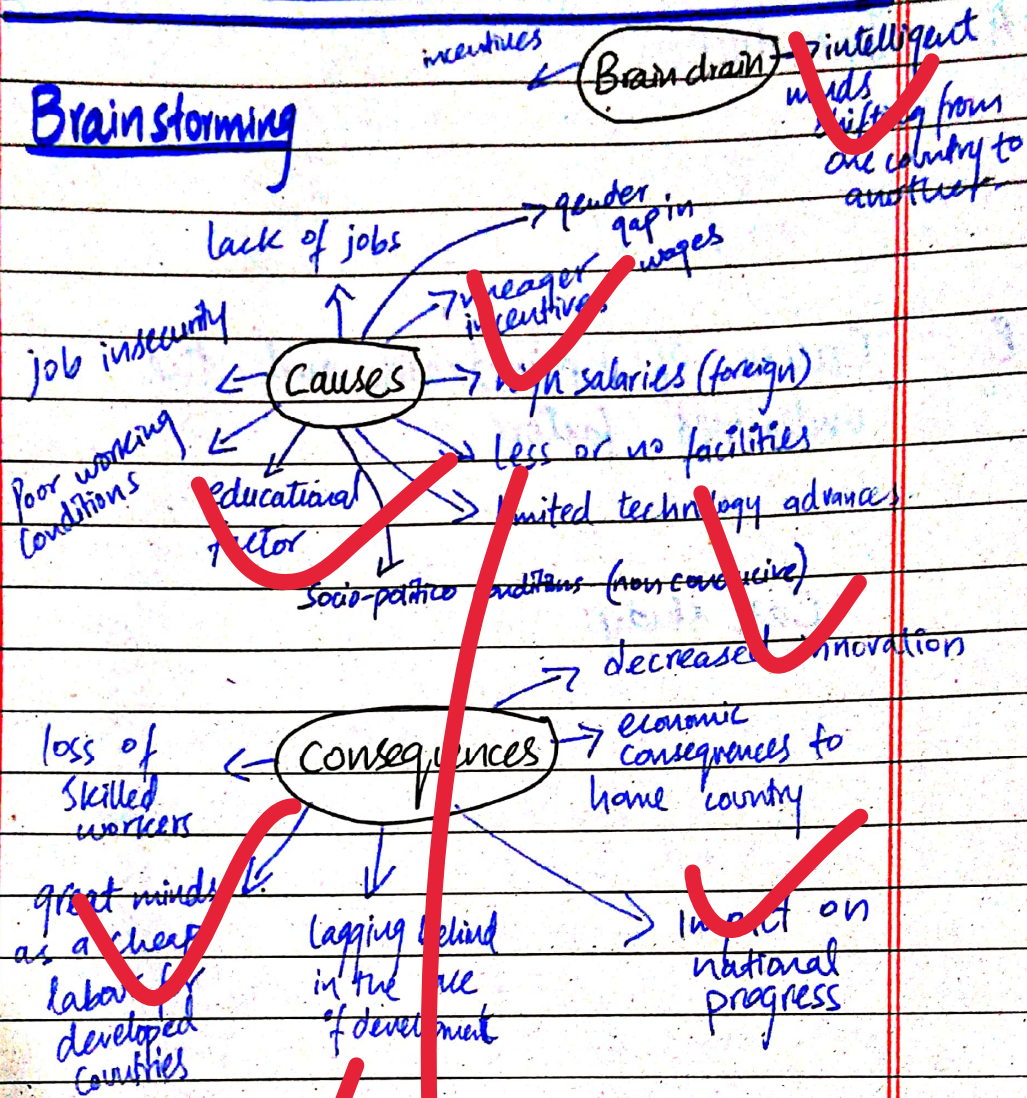 incentives
Brain drain
intelligent
minds
shifting from
one country to
another.
Brainstorming
lack of jobs
gender
gap in
wages
meager
incentives
job insecurity
causes
high salaries (foreign)
Poor working
conditions
less or no facilities
educational
factor
limited technology advances.
Socio-politico conditions (non conducive)
decreased innovation
consequences
economic
consequences to
home country
loss of
skilled
workers
great minds
as a cheap
labour for
developed
countries
lagging behind
in the race
of development
Impact on
national
progress